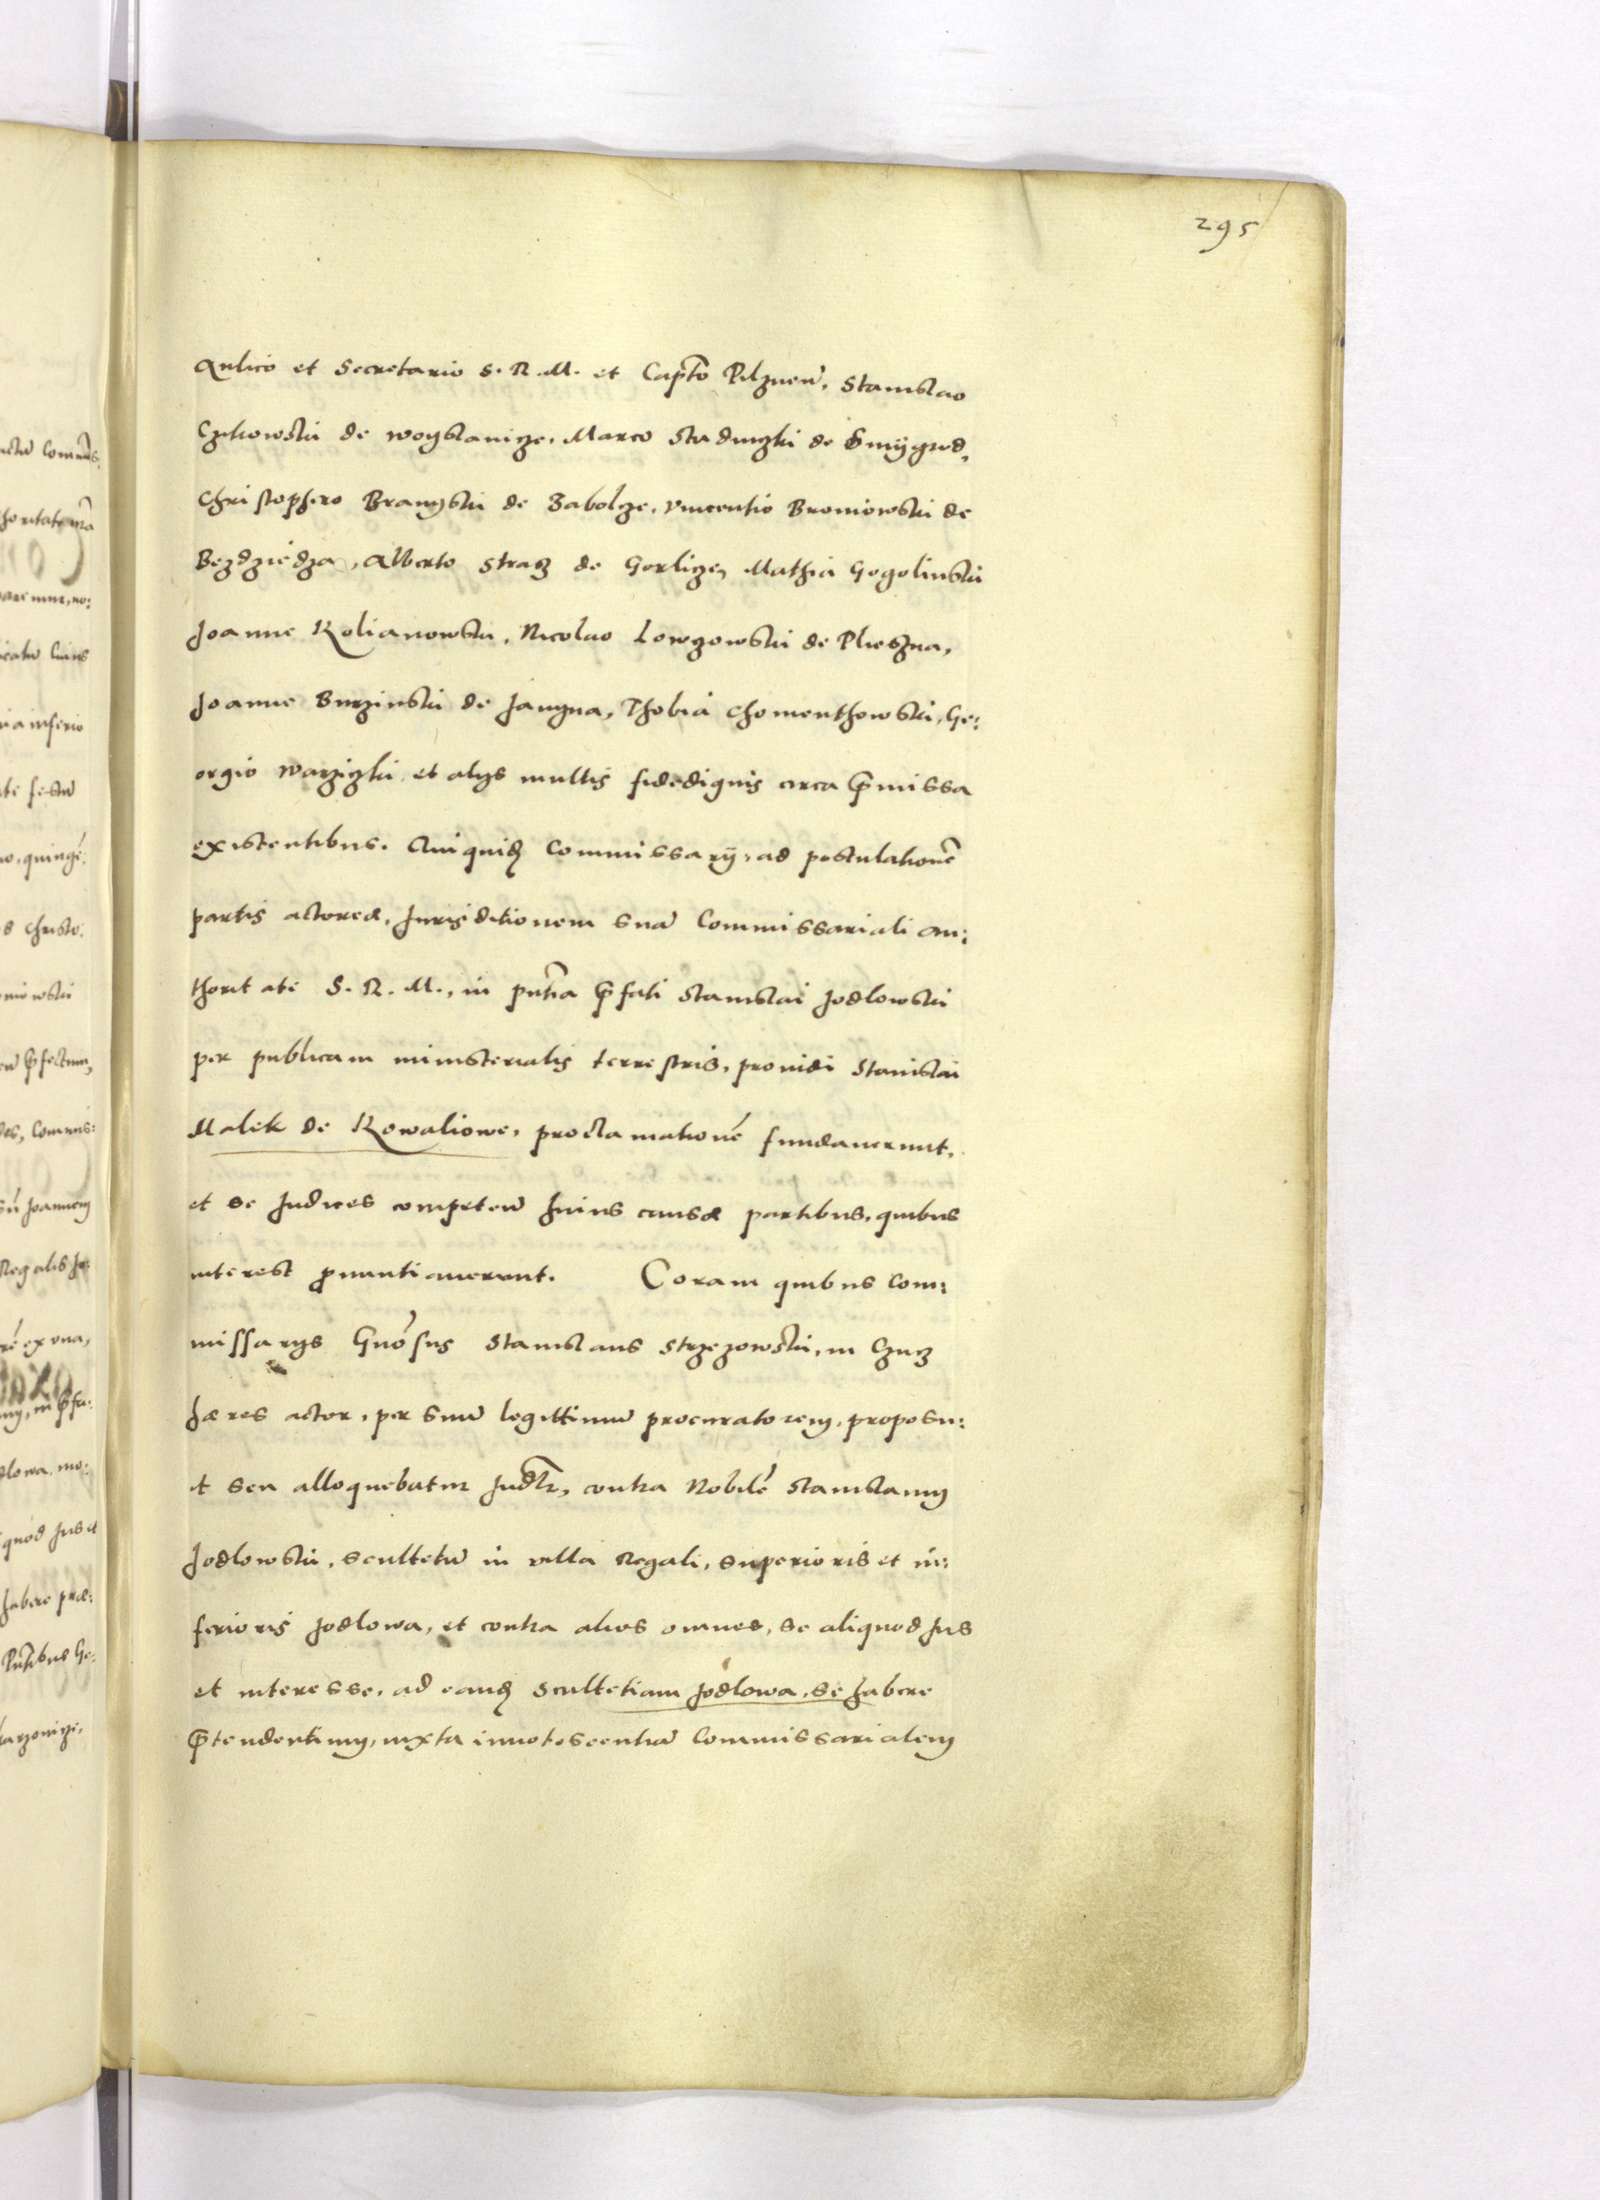 295
Aulico et Secretario S. R. M. et Capto Pilznen, Stanislao
Czikowski de Woyslawicze, Marco Stadniczki de Smÿgrod,
Christophero Branyski de Zabolcze, Vincentio Broniowski de
Bezdziedza, Alberto Stracz de Gorlicze, Mathia Gogolinski
Joanne Kolianowski, Nicolao Lowczowski de Plieszna,
Joanne Burzinski de Janyna, Thobia Chomenthowski, Ge:
orgio Warzizki, et alÿs multis fidedignis circa p̄missa
existentibus. Qui quid Commissarÿ, ad postulationē
partis actoreæ, Jurisditionem suā Commissariali au:
thoritate S. R. M., in pntia p̄fati Stanislai Jodlowski
per publicam ministerialis terrestris, providi Stanislai
Malek de Kowaliowe, proclamationē fundaverunt,
et se Judices competen huius causæ partibus, quibus
interest pnuntiaverunt. Coram quibus Com:
missarÿs Gnosus Stanislaus Strzezowski, in Czucz
hæres actor, per suū legittimū procuratorem, proposu:
it seu alloquebatur Judlr, contra Nobilē Stanislaum
Jodlowski, scultetū in villa Regali, superioris et in:
ferioris Jodlowa, et contra alios omnes, se aliquod Jus
et interesse, ad eand Scultetiam Jodlowa, se habere
p̄tendentium, iuxta innotescentiā Commissarialem